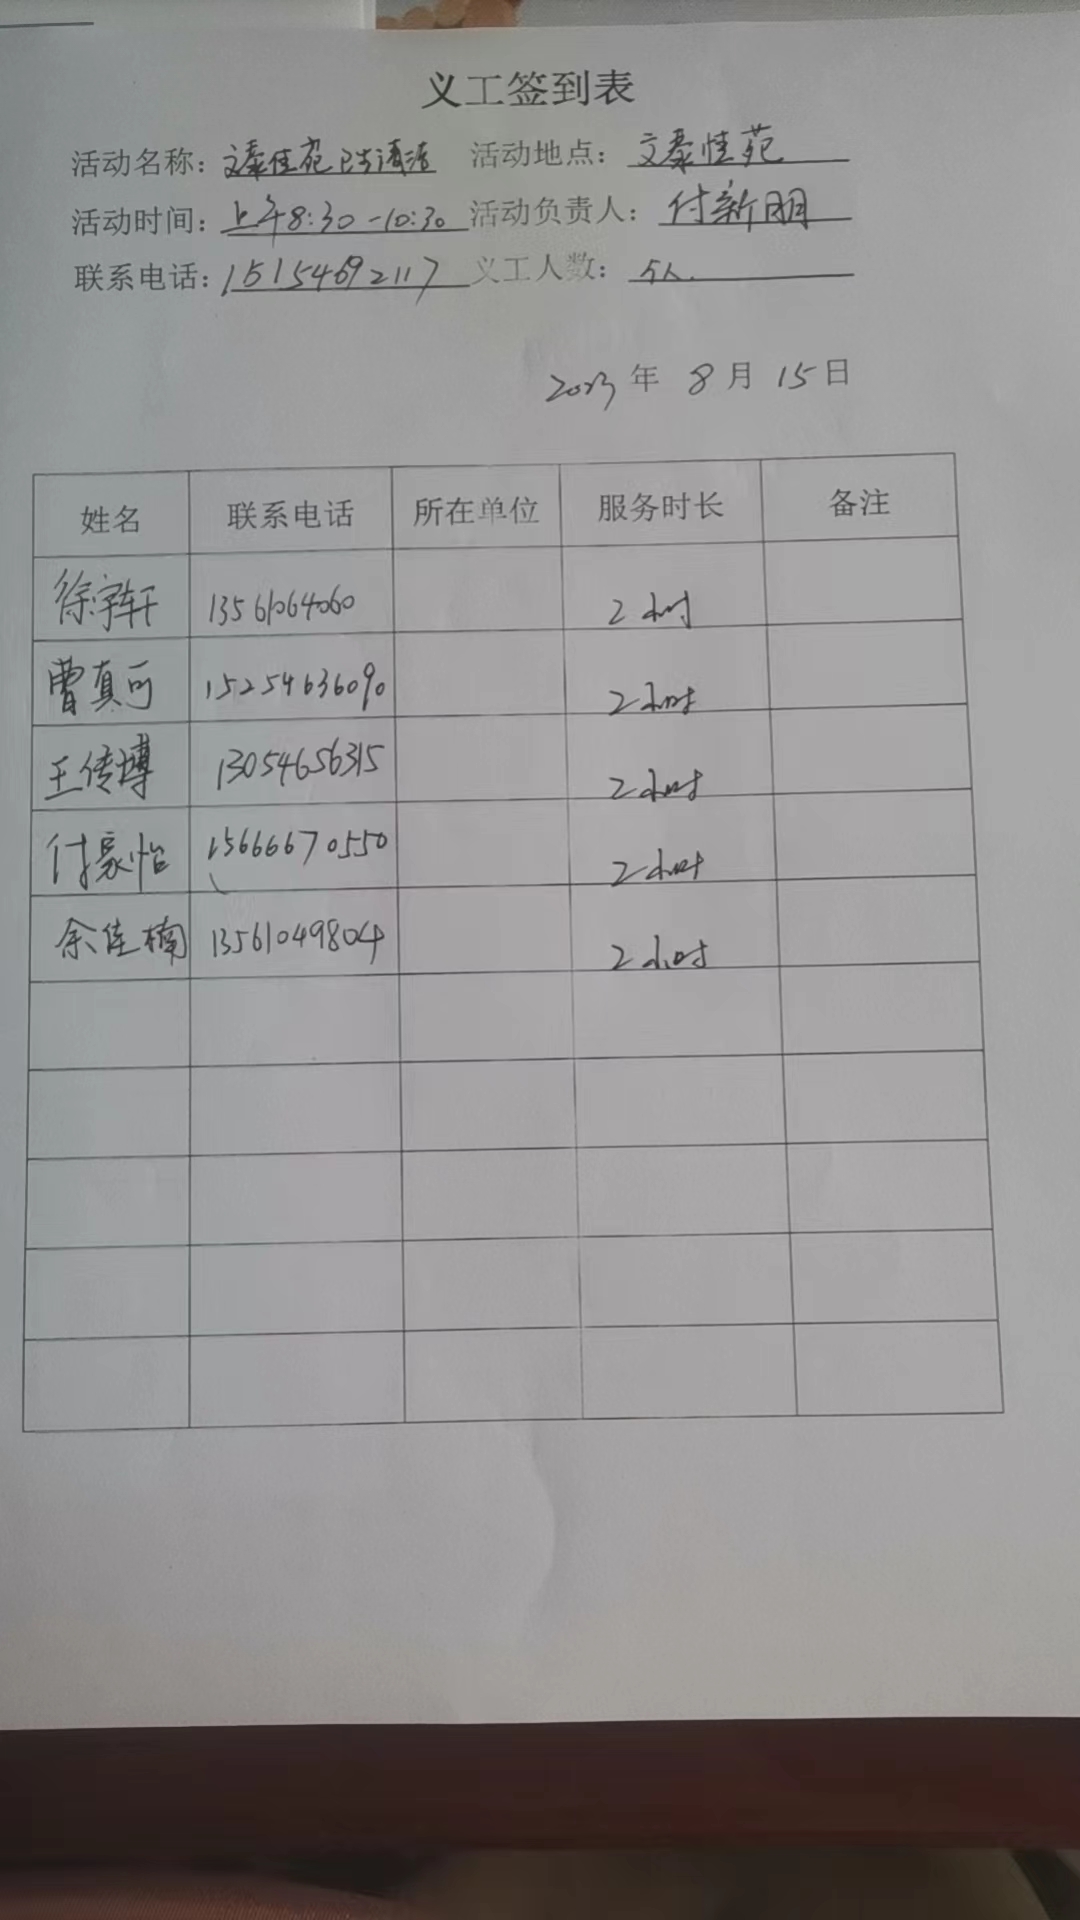 义工签到表
活动名称：文泰佳苑卫生清洁 活动地点：文泰佳苑
活动时间：上午8:30-10:30 活动负责人：付新明
联系电话：15154692117 义工人数：5人.
2023年 8月15日
姓名 联系电话 所在单位 服务时长 备注
徐宇轩 13561064060 2小时
曹真可 15254636090 2小时
王传博 13054656315 2小时
付豪怡 15666670550 2小时
余佳楠 13561049804 2小时